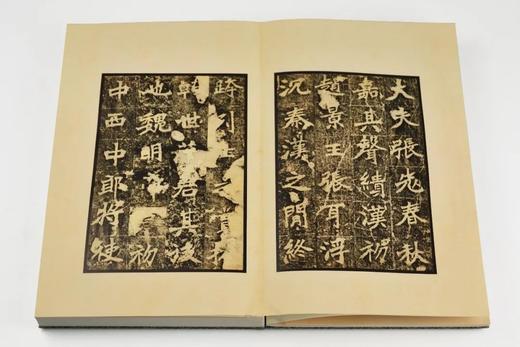 大夫張老春秋
嘉其聲績漢初
趙景王張耳浮
沉秦漢之間終
跨列之
世君其後
也魏明初
中西中郎將使